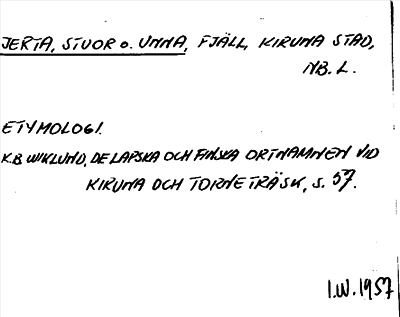 JERTA, STUOR o. UNNA, FJÄLL, KIRUNA STAD,
NB. L.
ETYMOLOGI.
K.B WIKLUND, DE LAPSKA OCH FINSKA ORTNAMNEN VID
KIRUNA OCH TORNETRÄSK, s. 57.
I.W. 1957